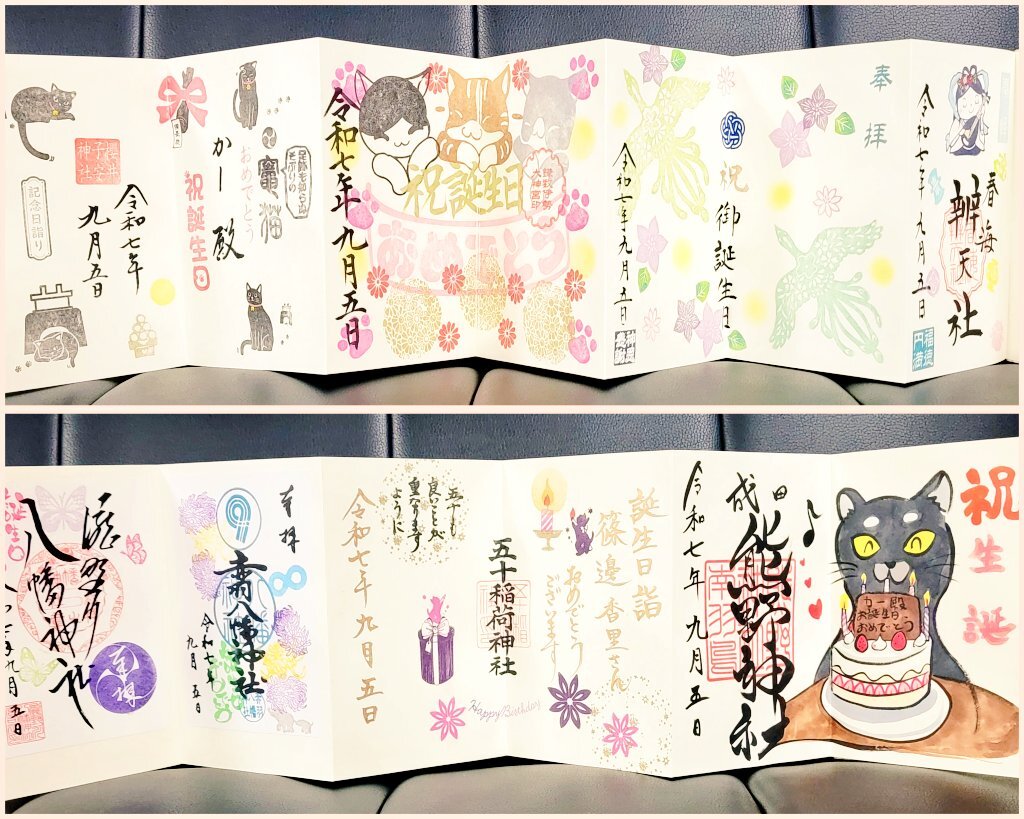 奉拝
春海
辨天社
令和七年 九月五日
福徳円満
祝
御誕生日
令和七年九月五日
祝誕生日
おめでとう
令和七年 九月五日
かー殿
おめでとう
祝誕生日
竈猫
令和七年
九月五日
記念日詣り
祝
生
誕
かー殿
お誕生日
おめでとう
成田
熊野神社
令和七年 九月五日
誕生日詣
篠邊 香里さん
おめでとう
ございます
五十稲荷神社
Happy Birthday
五十も
良いことが
重なります
ように
令和七年 九月五日
奉拝
八幡神社
令和七年
九月 五日
八幡神社
奉拝
九月五日